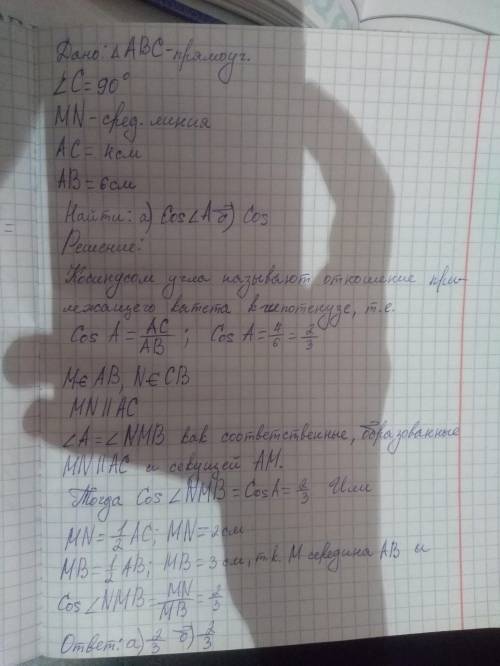 Дано: ∠ABC-прямоуг.
∠C=90°
MN-сред. линия
AC=4см
AB=6см
Найти: а) Cos∠A б) Cos
Решение:
Косинусом угла называют отношение при-
лежащего катета к гипотенузе, т.е.
Cos A = AC/AB ; Cos A = 4/6 = 2/3
M∈AB, N∈CB
MN||AC
∠A=∠NMB как соответственные, образованные
MN||AC и секущей AM.
Тогда Cos∠NMB=CosA=2/3 Или
MN=1/2 AC; MN=2см
MB=1/2 AB; MB=3см, т.к. M середина AB и
Cos∠NMB=MN/MB=2/3
Ответ: а) 2/3 б) 2/3
=